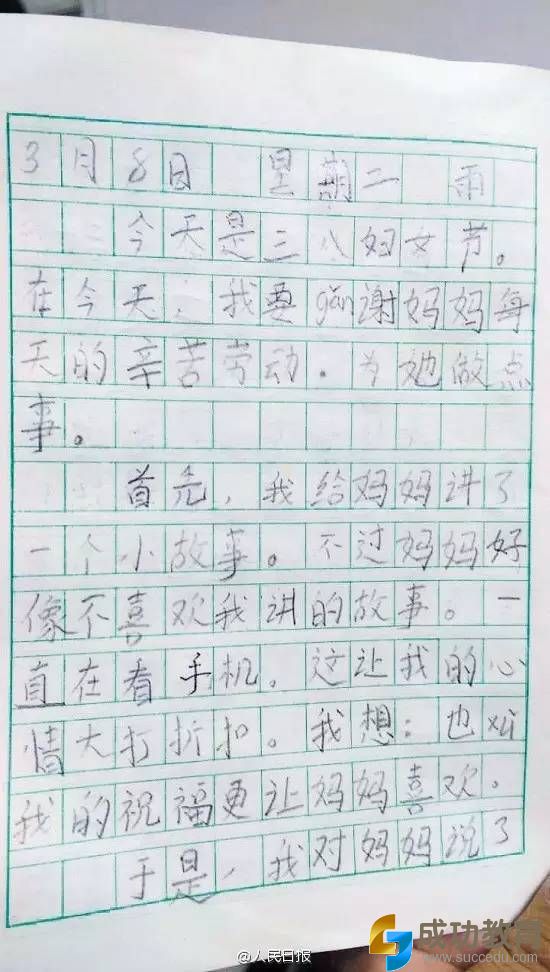 3月8日 星期二 雨
今天是三八妇女节。
在今天，我要gǎn谢妈妈每
天的辛苦劳动．为她做点
事。
首先，我给妈妈讲了
一个小故事。不过妈妈好
像不喜欢我讲的故事。一
直在看手机．这让我的心
情大打折扣。我想：也xǔ
我的祝福更让妈妈喜欢．
于是，我对妈妈说了
@人民日报
成功教育
www.succedu.com